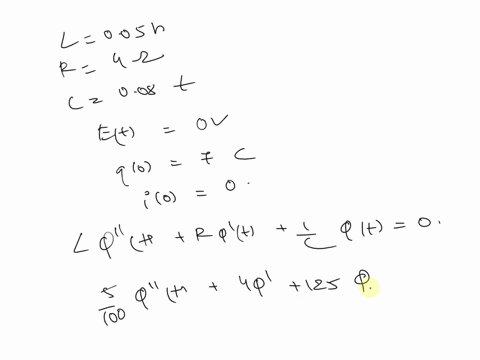 L = 0.05h
R = 4 Ω
C = 0.08 f
E(t) = 0V
q(0) = 7 C
i(0) = 0.
L Q''(t) + R Q'(t) + 1/C Q(t) = 0.
5/100 Q''(t) + 4Q' + 125 Q.